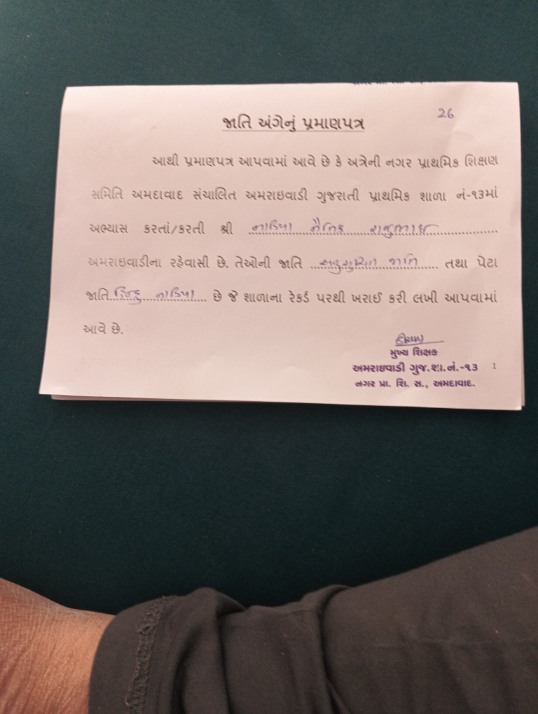 26
જાતિ અંગેનું પ્રમાણપત્ર
આથી પ્રમાણપત્ર આપવામાં આવે છે કે અત્રેની નગર પ્રાથમિક શિક્ષણ
સમિતિ અમદાવાદ સંચાલિત અમરાઇવાડી ગુજરાતી પ્રાથમિક શાળા નં-૧૩માં
અભ્યાસ કરતાં/કરતી શ્રી નાડિયા નૈતિક રાજુભાઇ
અમરાઇવાડીના રહેવાસી છે. તેઓની જાતિ અનુસુચિત જાતિ તથા પેટા
જાતિ હિન્દુ નાડિયા છે જે શાળાના રેકર્ડ પરથી ખરાઈ કરી લખી આપવામાં
આવે છે.
મુખ્ય શિક્ષક
અમરાઇવાડી ગુજ.શા.નં.-૧૩
નગર પ્રા. શિ. સ., અમદાવાદ.